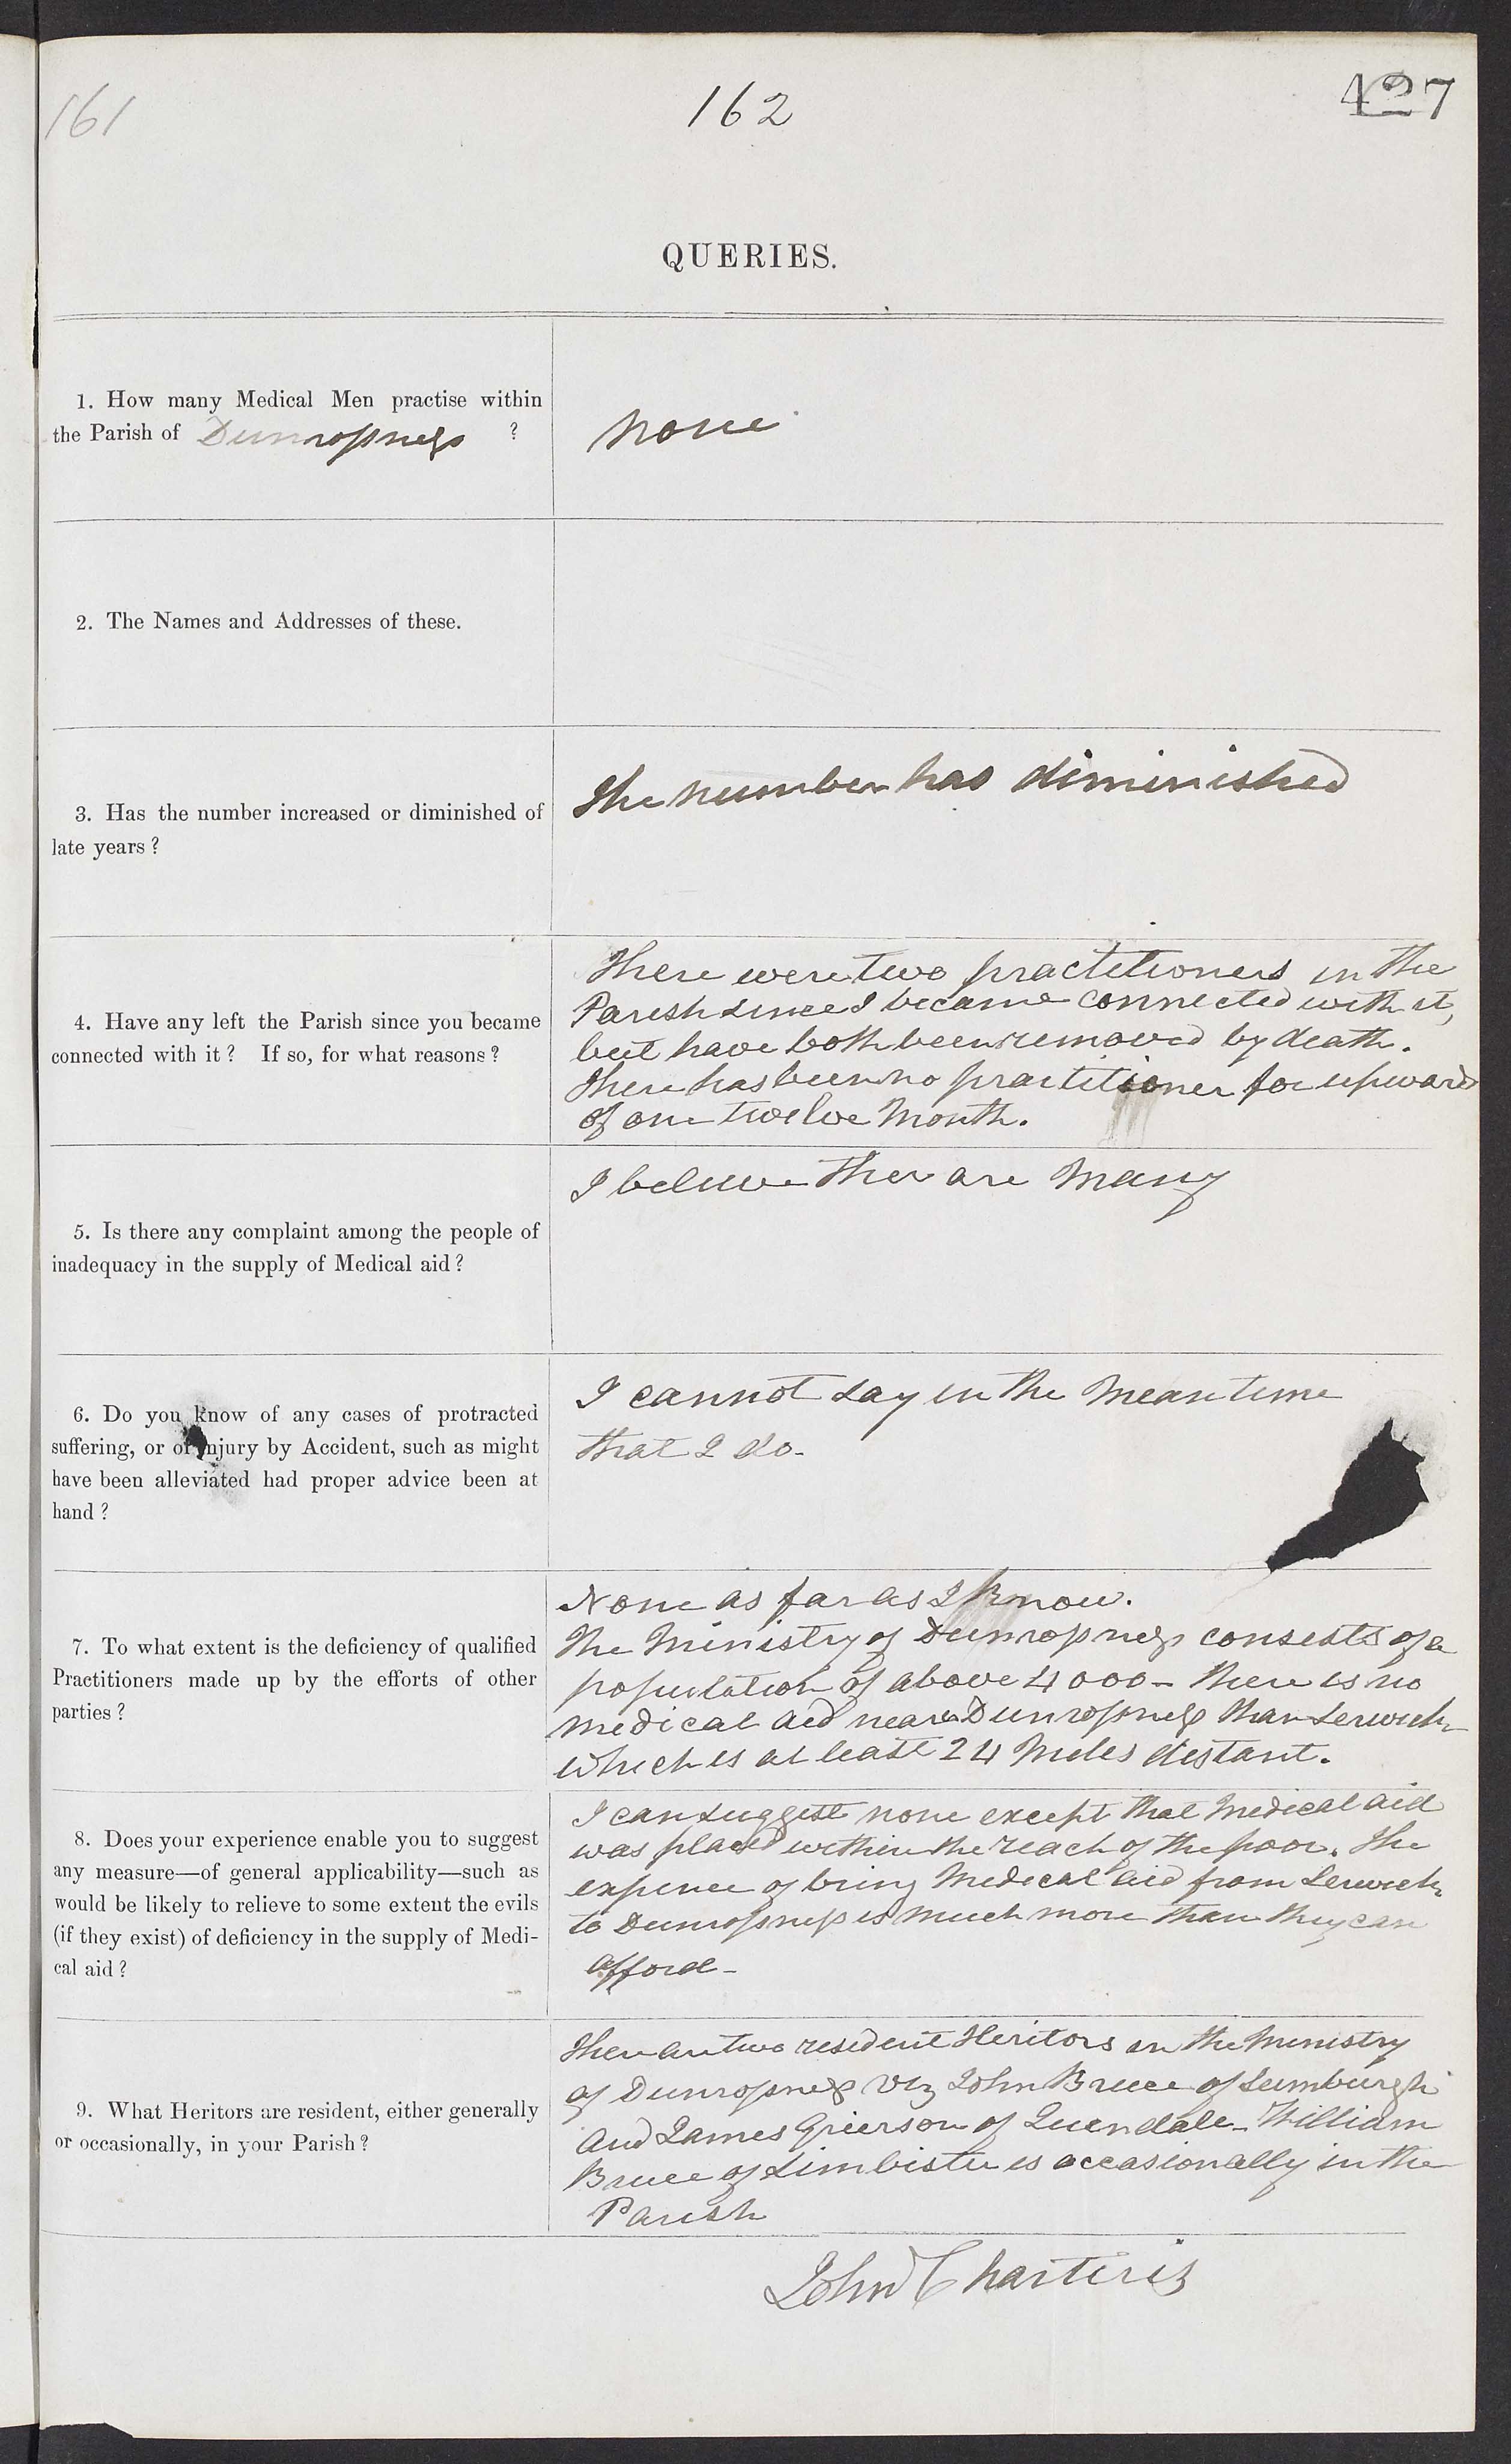 161
162
427
QUERIES.
1. How many Medical Men practise within
the Parish of Dunrossness ?
None
2. The Names and Addresses of these.
3. Has the number increased or diminished of
late years?
The number has diminished
4. Have any left the Parish since you became
connected with it? If so, for what reasons?
There were two practitioners in the
Parish since I became connected with it,
but have both been removed by death.
There has been no practitioner for upwards
of one twelve Month.
5. Is there any complaint among the people of
inadequacy in the supply of Medical aid?
I believe ther are Many
6. Do you know of any cases of protracted
suffering, or of injury by Accident, such as might
have been alleviated had proper advice been at
hand?
I cannot say in the Meantime
that I do-
7. To what extent is the deficiency of qualified
Practitioners made up by the efforts of other
parties?
None as far as I Know.
The Ministry of Dunrossness consists of a
population of above 4000 - there is no
medical aid nearer Dunrossness than Lerwick
which is at least 24 Miles distant.
8. Does your experience enable you to suggest
any measure—of general applicability—such as
would be likely to relieve to some extent the evils
(if they exist) of deficiency in the supply of Medi-
cal aid?
I can suggest none except that Medical aid
was placed within the reach of the poor. The
expence of bring Medical aid from Lerwick
to Dunrossness is much more than they can
afford -
9. What Heritors are resident, either generally
or occasionally, in your Parish?
Ther are two resident Heritors in the Ministry
of Dunrossness Viz John Bruce of Sumburgh
and James Grierson of Quendale - William
Bruce of Simbister is occasionally in the
Parish
John Charteris